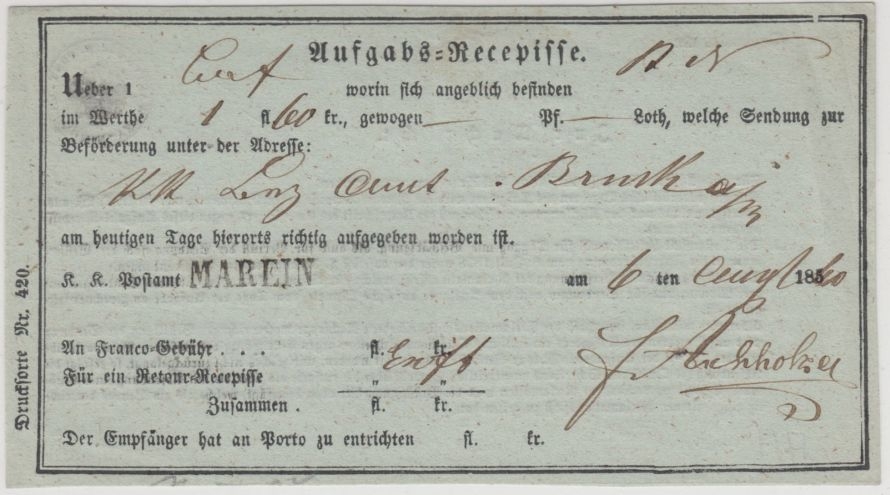 Aufgabs-Recepisse.
Ueber 1 worin sich angeblich befinden
im Werthe 1 fl. 60 kr., gewogen — Pf. — Loth, welche Sendung zur
Beförderung unter der Adresse:
KK Amt Bruck a/m
am heutigen Tage hierorts richtig aufgegeben worden ist.
K. K. Postamt MAREIN am 6 ten 185 60
An Franco-Gebühr . . . fl. kr.
Für ein Retour-Recepisse " "
Zusammen . fl. kr.
Der Empfänger hat an Porto zu entrichten fl. kr.
Drucksorte Nr. 420.